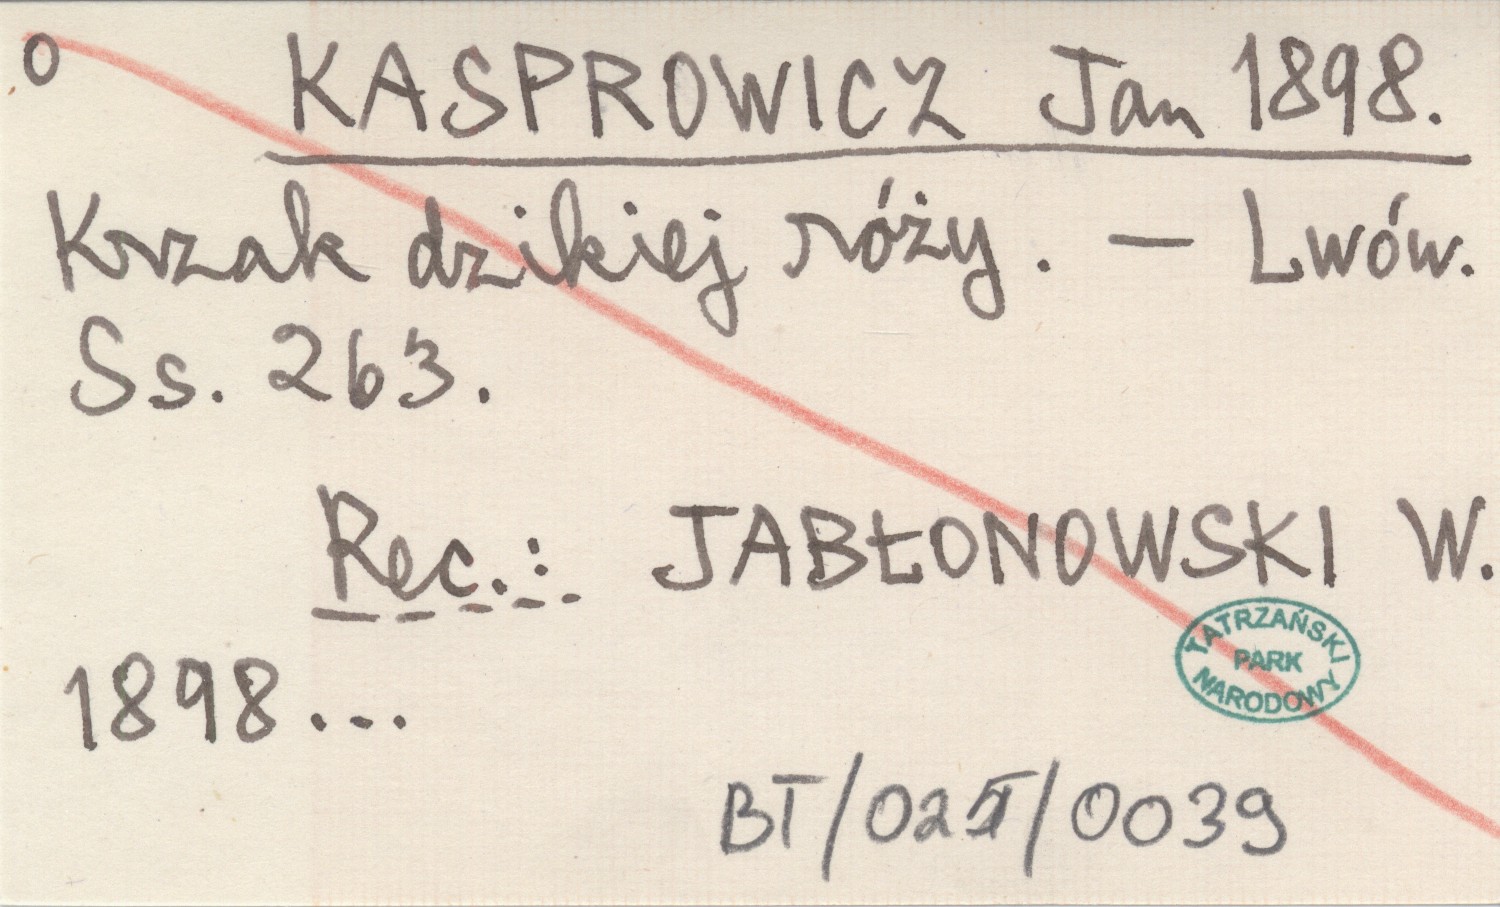 o KASPROWICZ Jan 1898.
Krzak dzikiej róży. — Lwów.
Ss. 263.
Rec.: JABŁONOWSKI W.
1898...
TATRZAŃSKI
PARK
NARODOWY
BT/ /0039